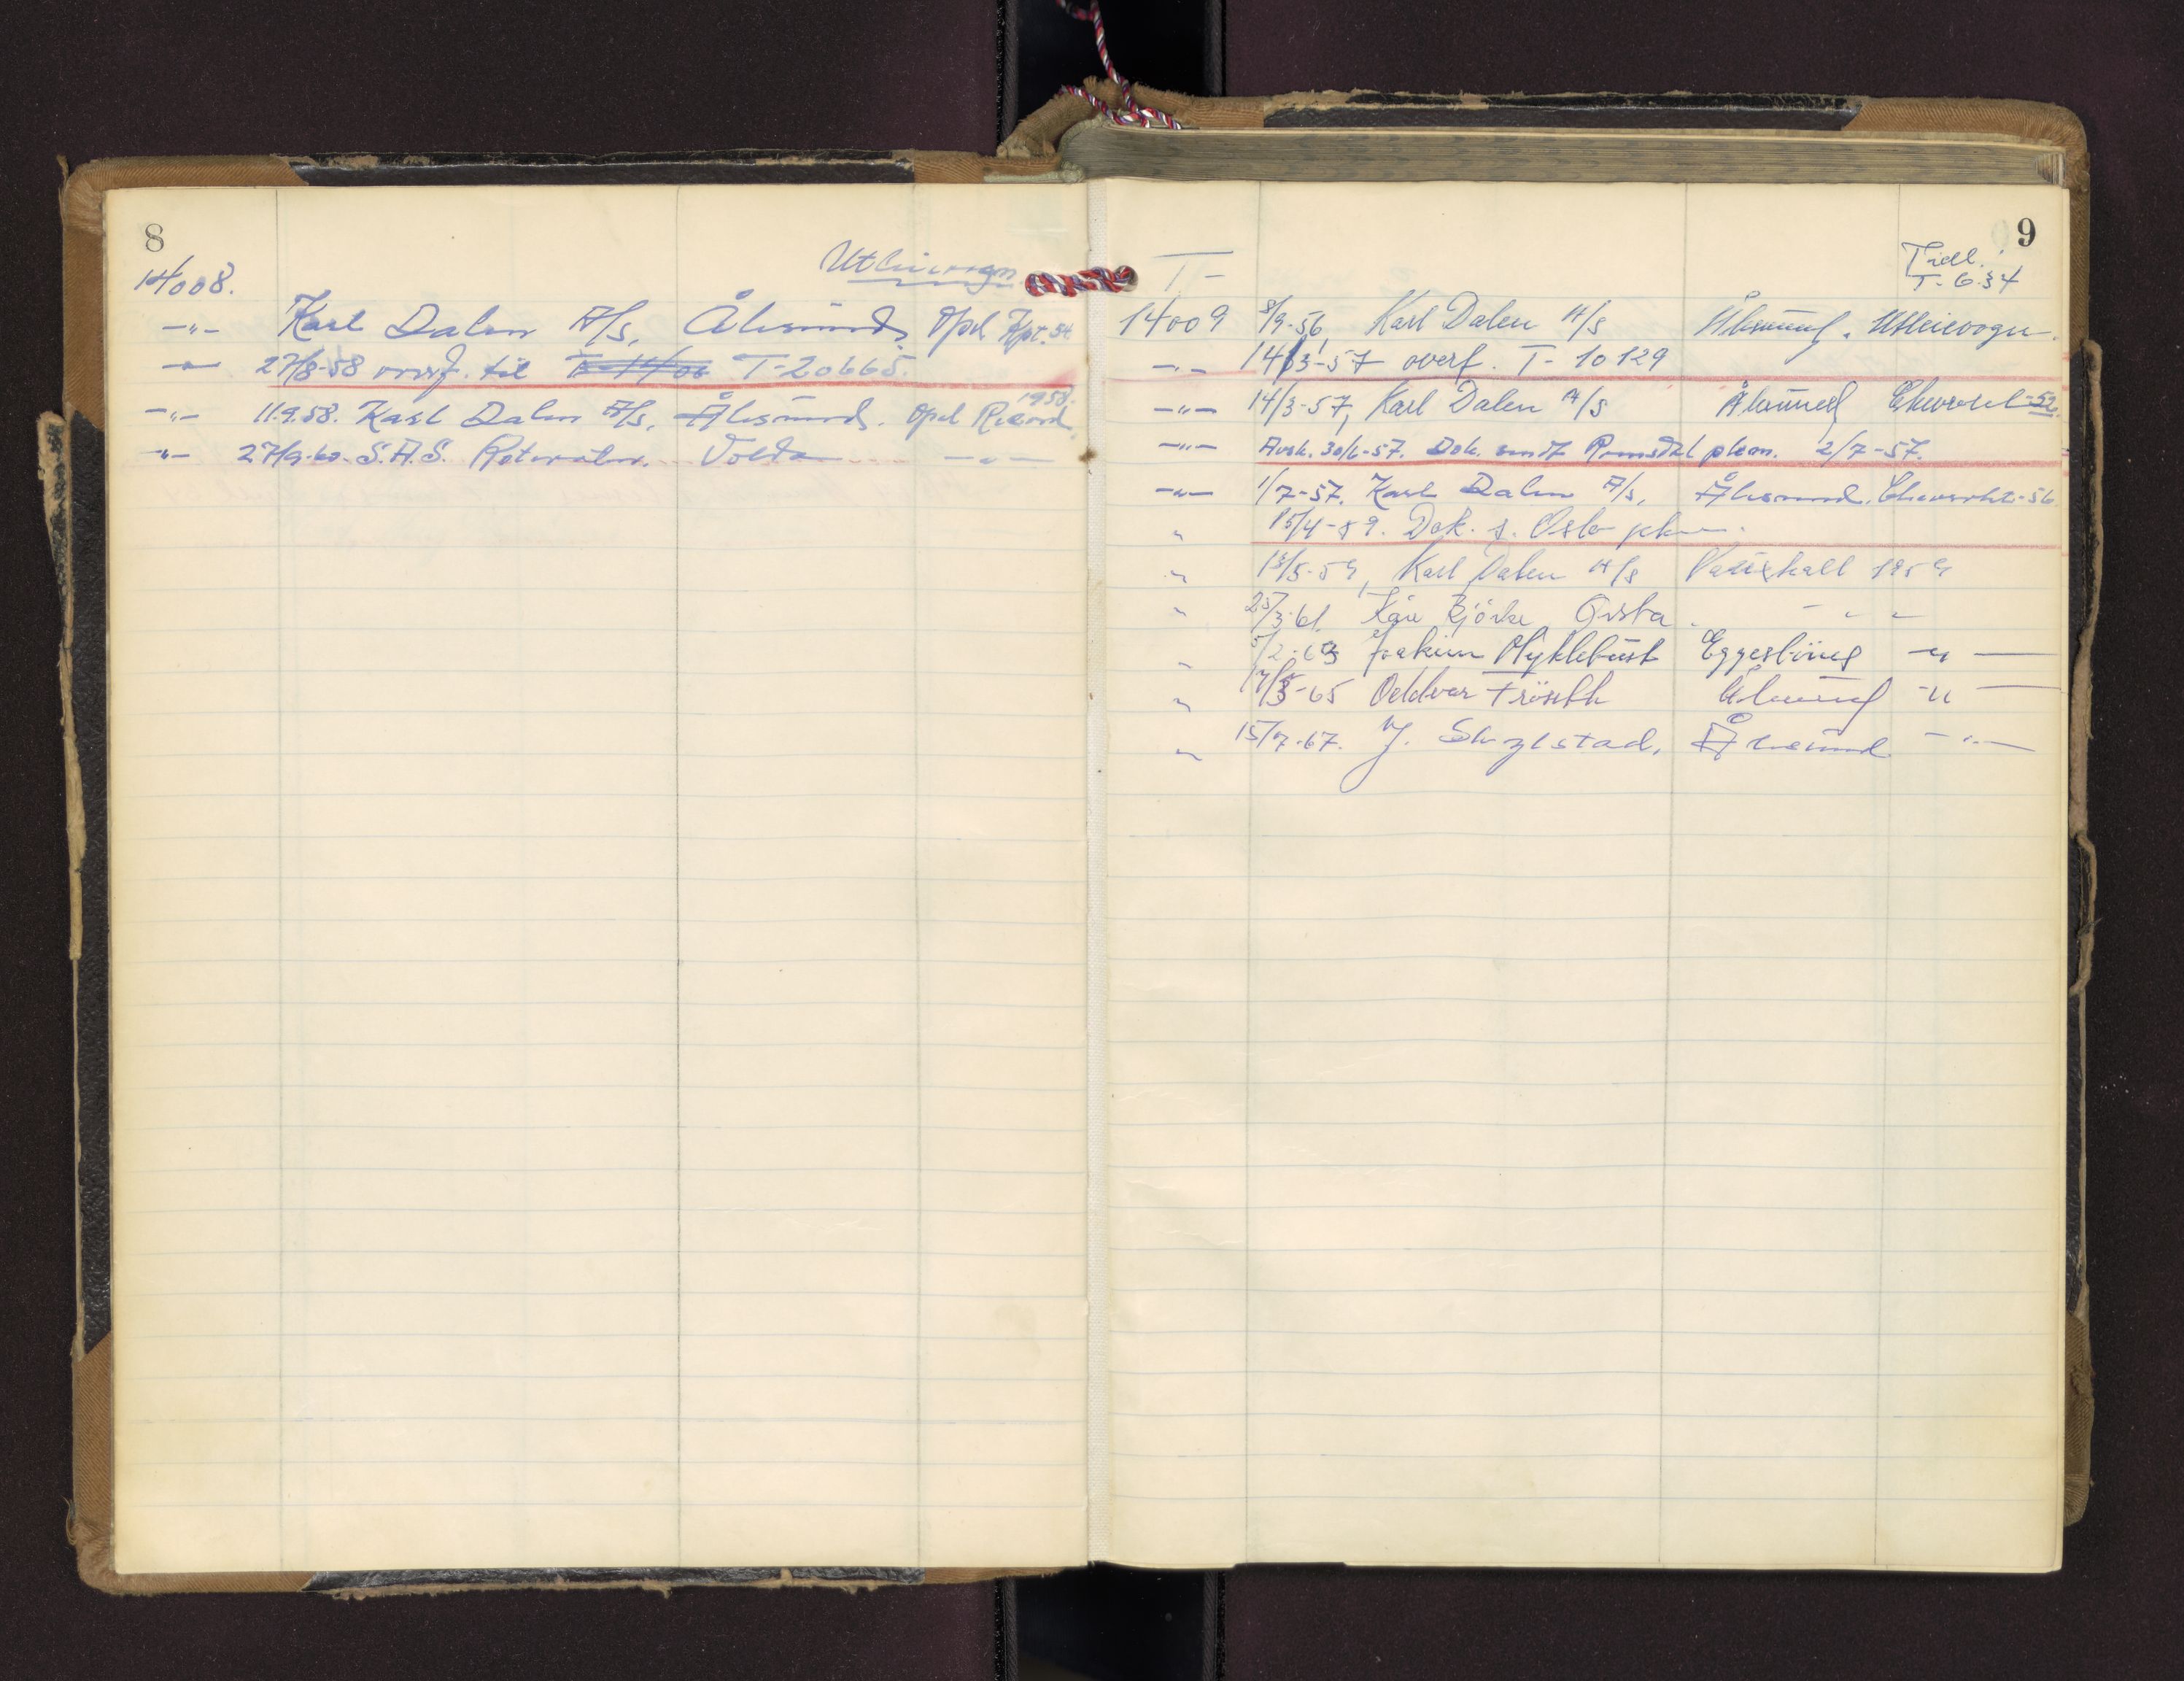 8
Utleievogn
14008.
-"- Karl Dalen A/S, Ålesund. Opel Kpt. 54
-"- 27/8-58 overf. til T-20665.
1958.
-"- 11.9.58. Karl Dalen A/S, Ålesund. Opel Rekord
-"- 27/9-60. S.A.S. Volda -"-
9
T-
Tidl.
T-6.34
14009 8/9-56, Karl Dalen A/S Ålesund. Utleievogn.
-"- 14/3-57 overf. T-10129
-"- 14/3-57, Karl Dalen A/S Ålesund Chevrolet-52
-"- Avsk. 30/6-57. Dok. sendt Romsdal pkam. 2/7-57.
-"- 1/7-57. Karl Dalen A/S, Ålesund. Chevrolet-56
" 15/4-59. Dok. s. Oslo pkm.
" 13/5-59, Karl Dalen A/S Vauxhall 1959
" 25/3-61. Kåre Bjørke Ørsta. - " -
" 5/2-63 Joakim Myklebust Eggesbønes -"-
" 17/3-65 Oddvar Ålesund -"-
" 15/7-67. Ålesund -"-